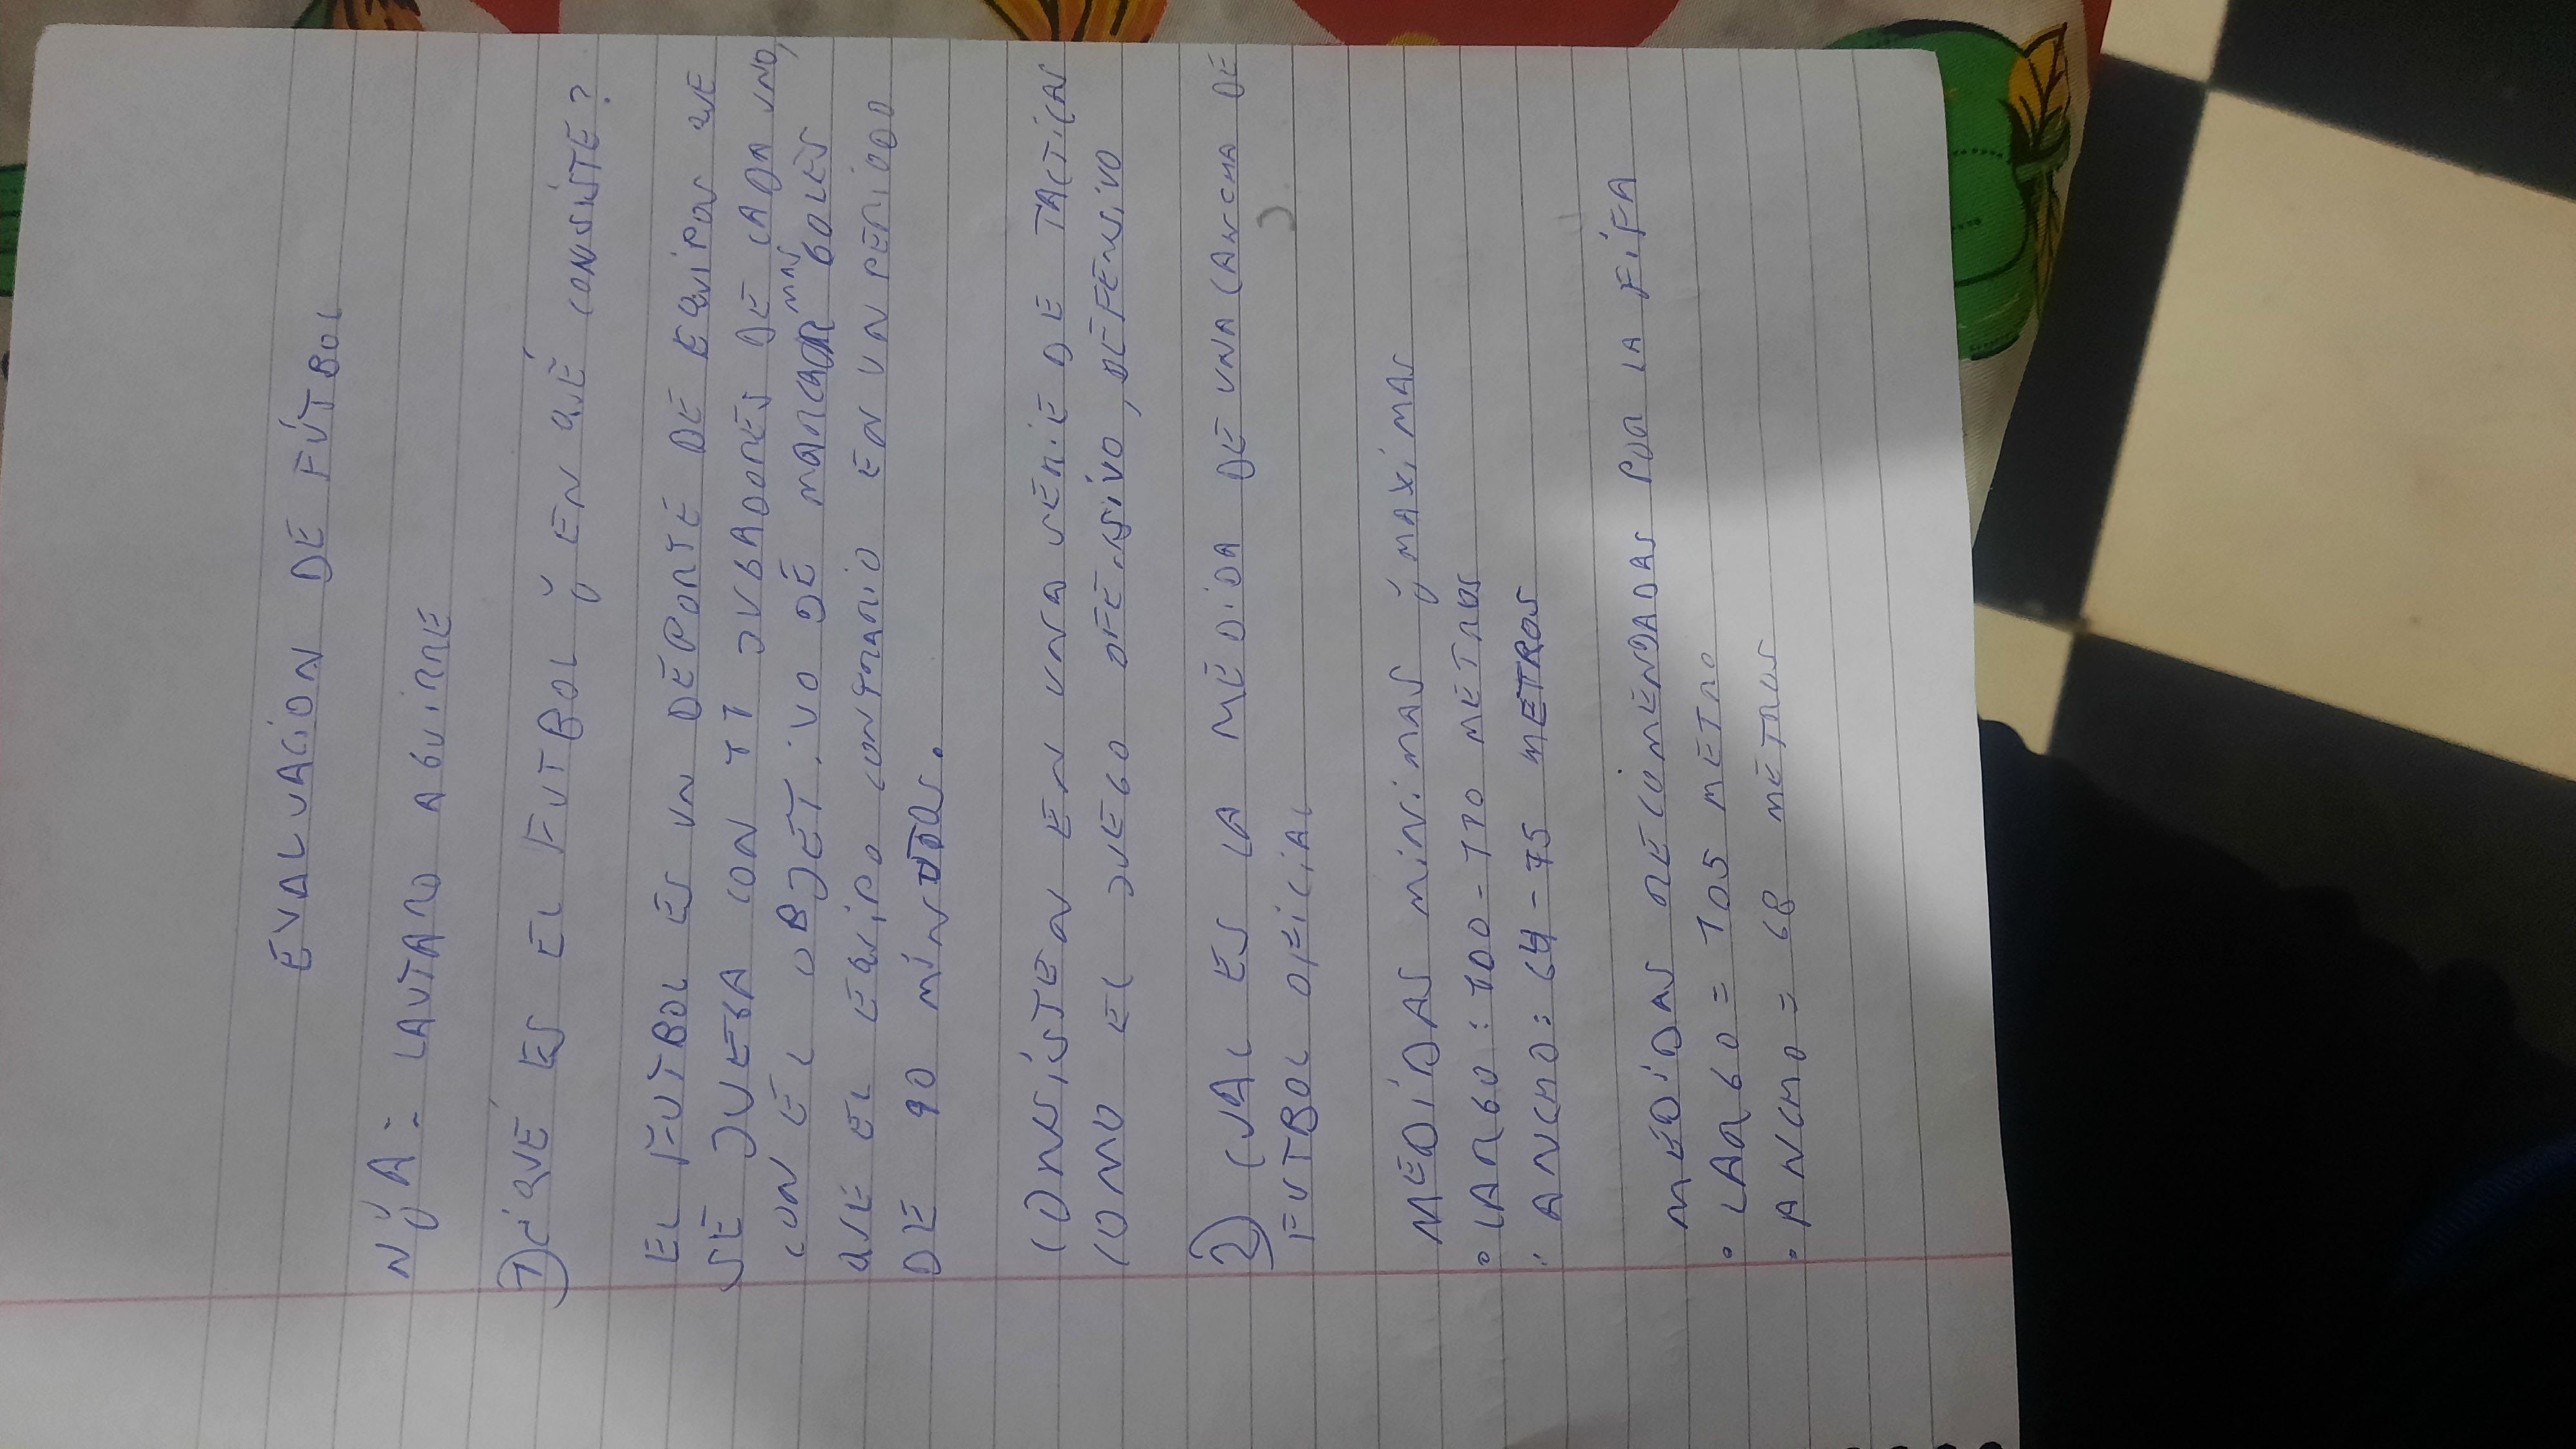 EVALUACION DE FÚTBOL
N Y A: LAUTARO AGUIRRE
1) ¿QUÉ ES EL FUTBOL Y EN QUÉ CONSISTE?
EL FUTBOL ES UN DEPORTE DE EQUIPOS QUE
SE JUEGA CON 11 JUGADORES DE CADA UNO,
CON EL OBJETIVO DE MARCAR MAS GOLES
QUE EL EQUIPO CONTRARIO EN UN PERIODO
DE 90 MINUTOS.
CONSISTEN EN UNA SERIE DE TACTICAS
COMO EL JUEGO OFENSIVO, DEFENSIVO
2) CUAL ES LA MEDIDA DE UNA CANCHA DE
FUTBOL OFICIAL
MEDIDAS MINIMAS Y MAXIMAS
• LARGO: 100-110 METROS
• ANCHO: 64-75 METROS
MEDIDAS RECOMENDADAS POR LA FIFA
• LARGO = 105 METRO
• ANCHO = 68 METROS